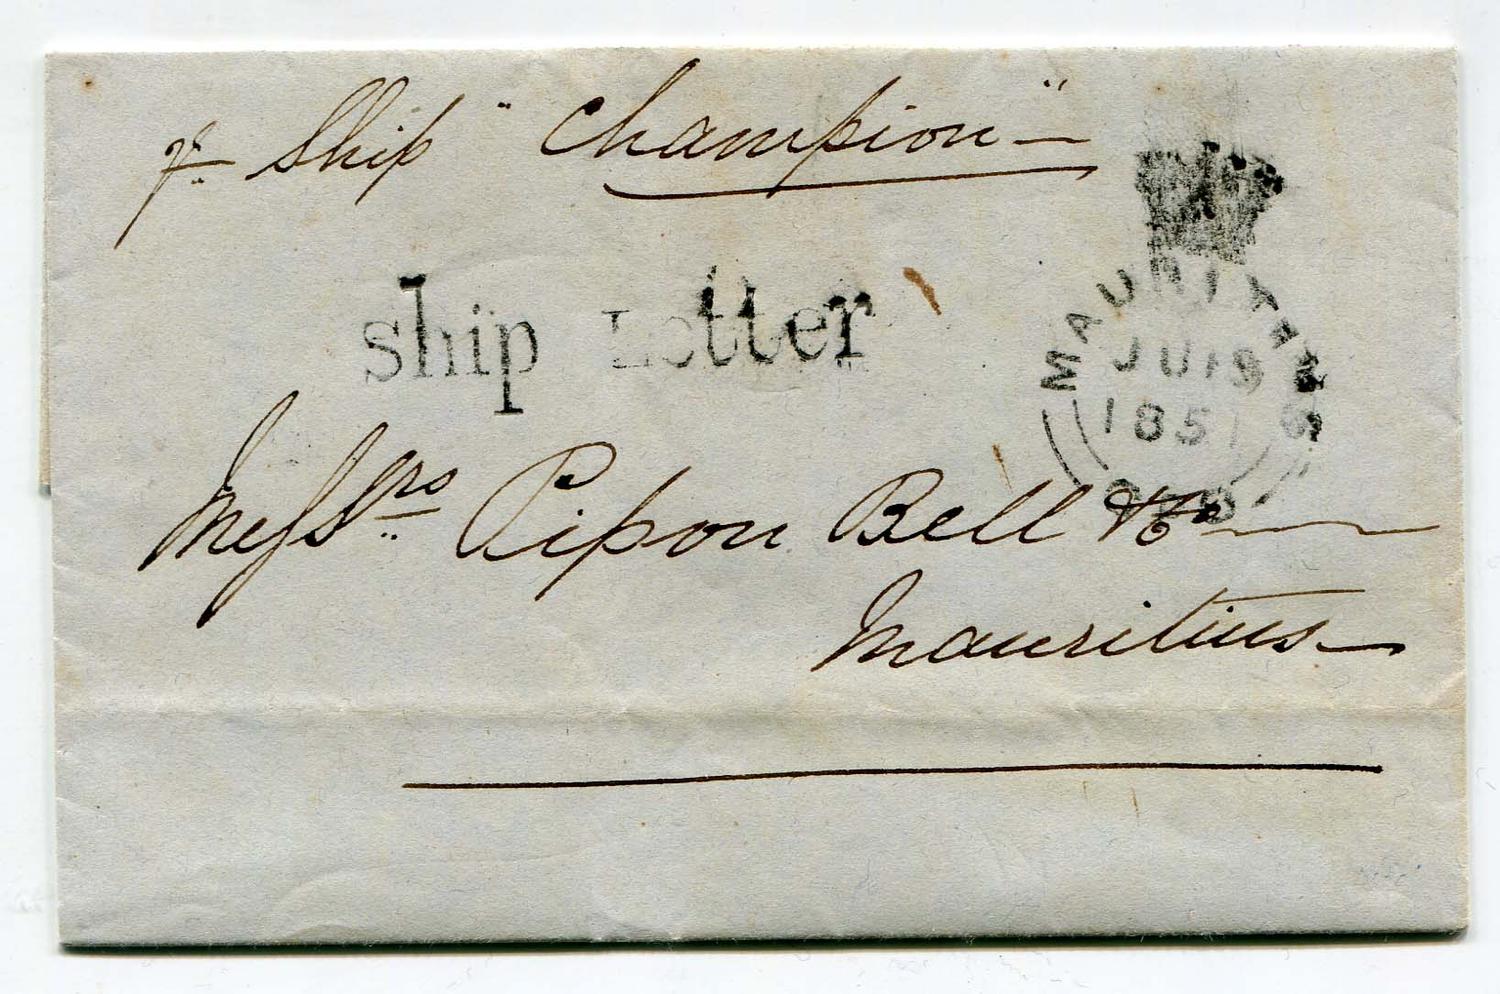 pr Ship "Champion"
Ship Letter
MAURITIUS
JU 9
1851
G.P.O
Messrs Pipon Bell & Co
Mauritius